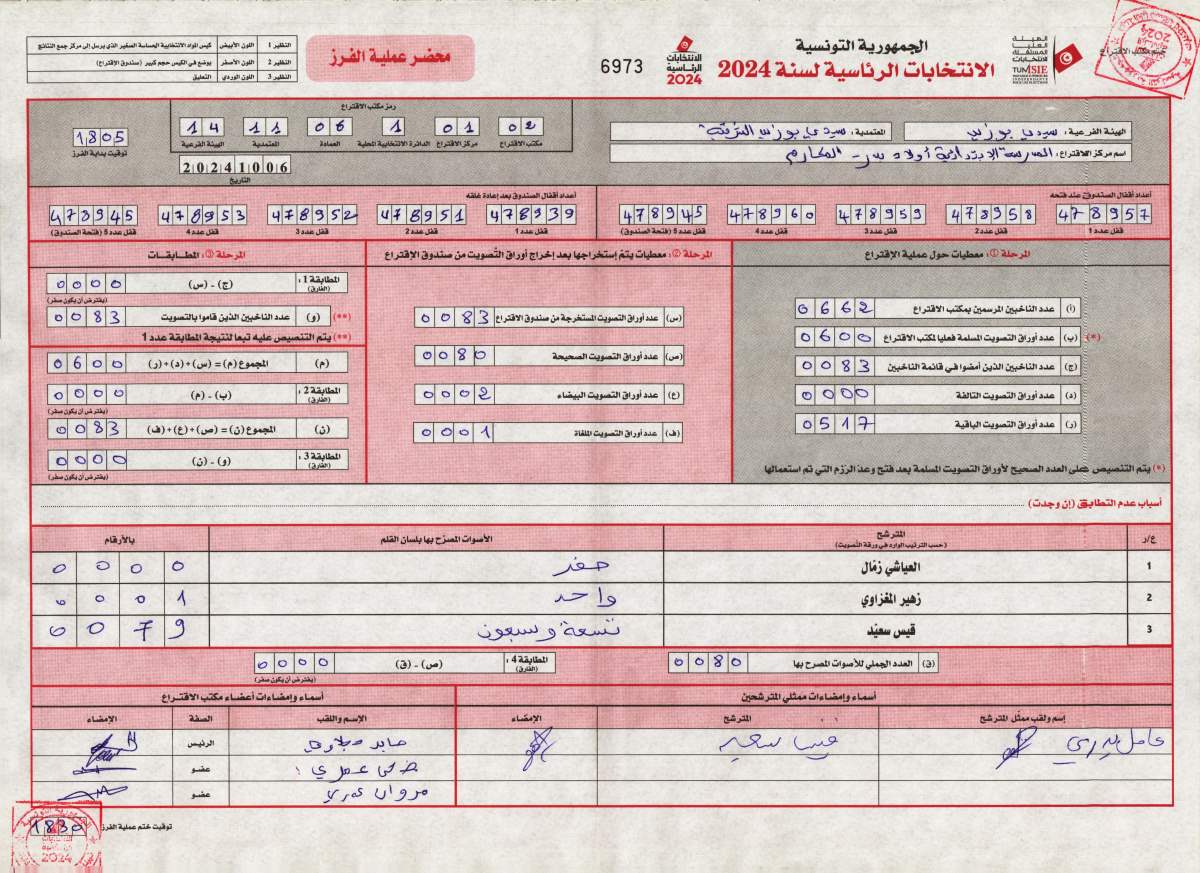 الجمهورية التونسية
الانتخابات الرئاسية لسنة 2024
الهيئة العليا المستقلة للانتخابات
TUNISIE
الانتخابات الرئاسية 2024
6973
محضر عملية الفرز
النظير 1 اللون الأبيض كيس المواد الانتخابية الحساسة الصغير الذي يرسل إلى مركز جمع النتائج
النظير 2 اللون الأصفر يوضع في الكيس حجم كبير (صندوق الإقتراع)
النظير 3 اللون الوردي التعليق
ختم مكتب الاقتراع
الهيئة الفرعية: سيدي بوزيد
المعتمدية: سيدي بوزيد الغربية
اسم مركز الاقتراع: المدرسة الابتدائية أولاد المكارم
رمز مكتب الاقتراع
02 01 1 06 11 14
مكتب الاقتراع مركز الاقتراع الدائرة الانتخابية المحلية العمادة المعتمدية الهيئة الفرعية
20241006
التاريخ
1805
توقيت بداية الفرز
أعداد أقفال الصندوق عند فتحه
478957 478958 478959 478960 478945
قفل عدد 1 قفل عدد 2 قفل عدد 3 قفل عدد 4 قفل عدد 5 (فتحة الصندوق)
أعداد أقفال الصندوق بعد إعادة غلقه
478939 478951 478952 478953 478945
قفل عدد 1 قفل عدد 2 قفل عدد 3 قفل عدد 4 قفل عدد 5 (فتحة الصندوق)
المرحلة ①: معطيات حول عملية الإقتراع
(أ) عدد الناخبين المرسمين بمكتب الاقتراع 0662
(*) (ب) عدد أوراق التصويت المسلمة فعليا لمكتب الاقتراع 0600
(ج) عدد الناخبين الذين أمضوا في قائمة الناخبين 0083
(د) عدد أوراق التصويت التالفة 0000
(ر) عدد أوراق التصويت الباقية 0517
(*) يتم التنصيص على العدد الصحيح لأوراق التصويت المسلمة بعد فتح وعدّ الرزم التي تم استعمالها
المرحلة ②: معطيات يتمّ إستخراجها بعد إخراج أوراق التّصويت من صندوق الإقتراع
(س) عدد أوراق التصويت المستخرجة من صندوق الاقتراع 0083
(ص) عدد أوراق التصويت الصحيحة 0080
(ع) عدد أوراق التصويت البيضاء 0002
(ف) عدد أوراق التصويت الملغاة 0001
المرحلة ③: المطابقات
المطابقة 1: (الفارق) (ج) - (س) 0000
(يفترض أن يكون صفر)
(**) (و) عدد الناخبين الذين قاموا بالتصويت 0083
(**) يتم التنصيص عليه تبعا لنتيجة المطابقة عدد 1
(م) المجموع (م) = (س) + (د) + (ر) 0600
المطابقة 2: (الفارق) (ب) - (م) 0000
(يفترض أن يكون صفر)
(ن) المجموع (ن) = (ص) + (ع) + (ف) 0083
المطابقة 3: (الفارق) (و) - (ن) 0000
(يفترض أن يكون صفر)
أسباب عدم التطابق (إن وجدت)
ع/ر المترشح الأصوات المصرّح بها بلسان القلم بالأرقام
(حسب الترتيب الوارد في ورقة التصويت)
1 العياشي زمّال صفر 0000
2 زهير المغزاوي واحد 0001
3 قيس سعيّد تسعة وسبعون 0079
(ق) العدد الجملي للأصوات المصرح بها 0080
المطابقة 4: (الفارق) (ص) - (ق) 0000
(يفترض أن يكون صفر)
أسماء وإمضاءات ممثلي المترشحين
إسم ولقب ممثّل المترشح المترشح الإمضاء
قيس سعيد
أسماء وإمضاءات أعضاء مكتب الاقتراع
الإسم واللقب الصفة الإمضاء
الرئيس
عضو
مروان عمري عضو
توقيت ختم عملية الفرز 1830